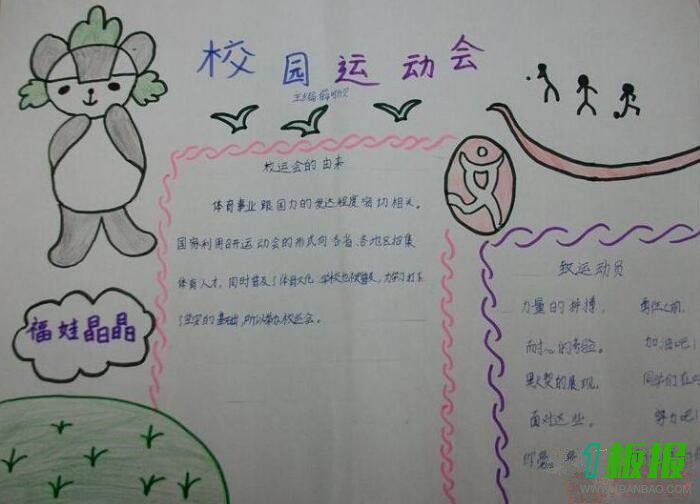 校园运动会
校运会的由来
体育事业跟国力的发达程度密切相关。
国家利用召开运动会的形式向各省、各地区招集
体育人才,同时普及了体育文化。学校也
了坚实的基础,所以校运会。
福娃晶晶
致运动员
力量的拼搏,
耐心的考验。 加油吧!
默契的展现, 同学们在
面对这些。 努力吧!
1板报
WWW.1BANBAO.COM